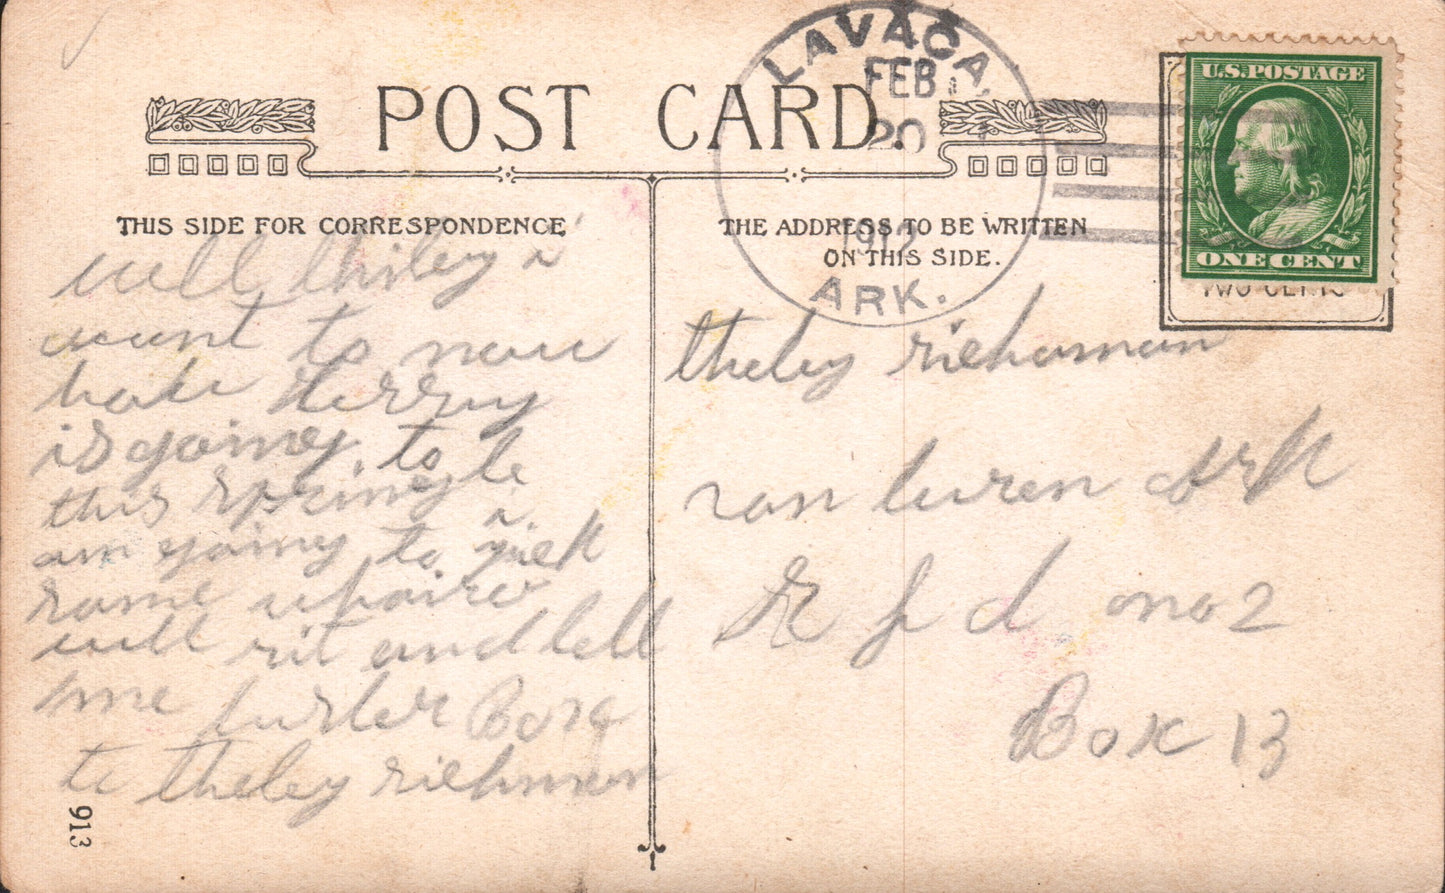 POST CARD.
THIS SIDE FOR CORRESPONDENCE
THE ADDRESS TO BE WRITTEN
ON THIS SIDE.
LAVACA
FEB
20
1912
ARK.
U.S. POSTAGE
ONE CENT
TWO CENTS
well thiley i
want to now
how
is going to be
this spring
i am going to
some
will rit and tell
me
to theley richman
theley richaman
van buren Ark
R f d no 2
Box 13
913